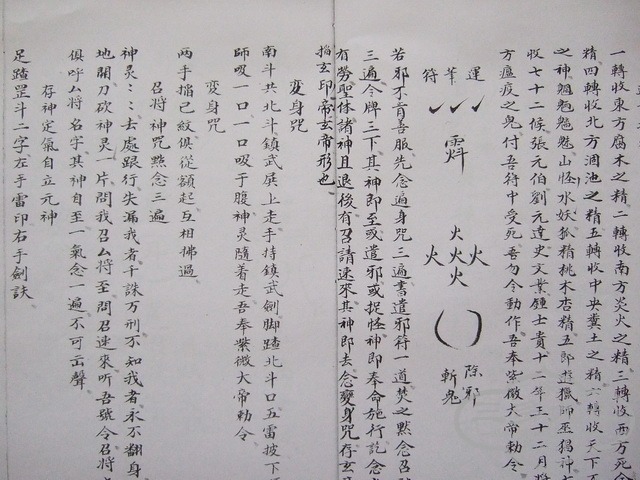 一轉收東方腐木之精二轉收南方炎火之精三轉收西方死金
精四轉收北方涸池之精五轉收中央糞土之精六轉收天下
之神魍魎魑魅山怪水妖狐精桃木杏精五郎遊獵師巫
收七十二候張元伯劉元達史文業鍾士貴十二年王十二月將
方瘟疫之鬼付吾符中受死吾勿令動作吾奉紫微大帝勅令
運筆符
火火火火火
除邪
斬鬼
若邪不肯善服先念遍身咒三遍書遣邪符一道焚之黙念召
三遍令牌三下其神即至或遣邪或捉怪神即奉命施行訖念
有勞聖体諸神且退後有召請速來其神即去念變身咒存玄
搯玄印帝玄帝形也
變身咒
南斗共北斗鎮武展上走手持鎮武劍脚踏北斗口五雷披下
師吸一口一口吸于腹神灵隨着走吾奉紫微大帝勅令
變身咒
兩手搯己紋俱從額起互相拂過
召將神咒黙念三遍
神灵灵去處跟行失漏我者千誅万刑不知我者永不翻身
地開刀砍神灵一片問我召厶將至問召速來听吾號令召將
俱呼厶將名字其神自至一氣念一遍不可出聲
存神定氣自立元神
足踏罡斗二字左手雷印右手劍訣